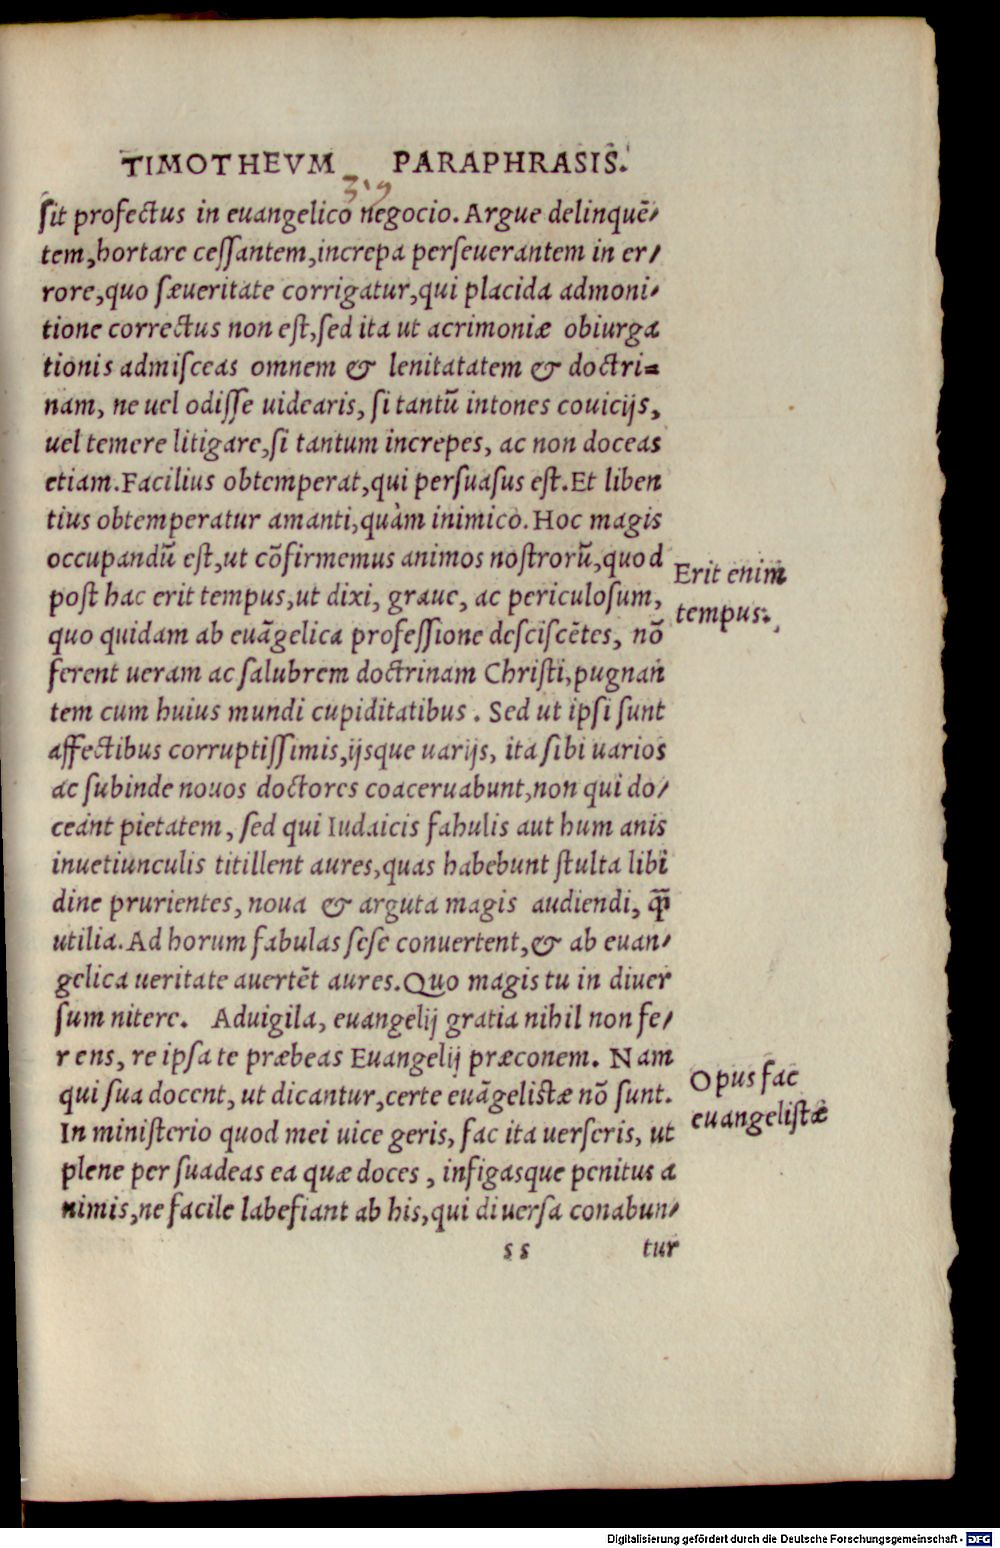 TIMOTHEVM PARAPHRASIS.
sit profectus in euangelico negocio. Argue delinquē/
tem, hortare cessantem, increpa perseuerantem in er/
rore, quo sæueritate corrigatur, qui placida admoni/
tione correctus non est, sed ita ut acrimoniæ obiurga
tionis admisceas omnem & lenitatatem & doctri=
nam, ne uel odisse uidearis, si tantū intones couicijs,
uel temere litigare, si tantum increpes, ac non doceas
etiam. Facilius obtemperat, qui persuasus est. Et liben
tius obtemperatur amanti, quàm inimico. Hoc magis
occupandū est, ut cōfirmemus animos nostrorū, quod
post hac erit tempus, ut dixi, graue, ac periculosum,
Erit enim
tempus.
quo quidam ab euāgelica professione desciscētes, nō
ferent ueram ac salubrem doctrinam Christi, pugnan
tem cum huius mundi cupiditatibus. Sed ut ipsi sunt
affectibus corruptissimis, ijsque uarijs, ita sibi uarios
ac subinde nouos doctores coaceruabunt, non qui do/
ceant pietatem, sed qui Iudaicis fabulis aut humanis
inuetiunculis titillent aures, quas habebunt stulta libi
dine prurientes, noua & arguta magis audiendi, q̄m̄
utilia. Ad horum fabulas sese conuertent, & ab euan/
gelica ueritate auertēt aures. Quo magis tu in diuer
sum nitere. Aduigila, euangelij gratia nihil non fe/
rens, re ipsa te præbeas Euangelij præconem. Nam
qui sua docent, ut dicantur, certe euāgelistæ nō sunt.
Opus fac
euangelistæ
In ministerio quod mei uice geris, fac ita uerseris, ut
plene persuadeas ea quæ doces, infigasque penitus a
nimis, ne facile labefiant ab his, qui diuersa conabun/
ss tur
Digitalisierung gefördert durch die Deutsche Forschungsgemeinschaft - DFG